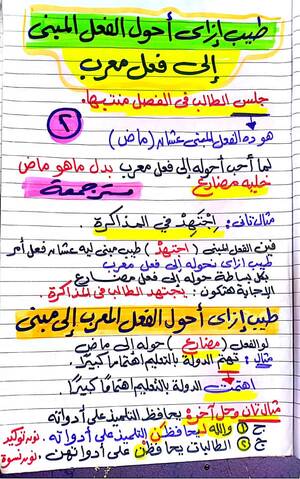 طيب إزاى أحول الفعل المبنى
إلى فعل معرب
جلس الطالب فى الفصل منتبهاً.
٢
هو ده الفعل المبنى عشان (ماض)
لما أحب أحوله إلى فعل معرب بدل ماهو ماض
خليه مضارع
مستر جمعة
مثال تانى: اِجْتَهِدْ في المذاكرة.
فين الفعل المبنى (اجتهدْ) طيب مبنى ليه عشان فعل أمر
طيب ازاى نحوله إلى فعل معرب
بكل بساطة حوله إلى فعل مضارع
الإجابة هتكون: يجتهد الطالب في المذاكرة
طيب إزاى أحول الفعل المعرب إلى مبنى
لو الفعل (مضارع) حوله إلى ماض
مثال: تهتم الدولة بالتعليم اهتماماً كبيرًا.
اهتمت الدولة بالتعليم اهتمامًا كبيرًا.
مثال تانى وحل آخر: يحافظ التلميذ على أدواته
ج ① والله ليحافظن التلميذ على أدواته. نون توكيد
ج ② الطالبات يحافظن على أدواتهن. نون نسوة